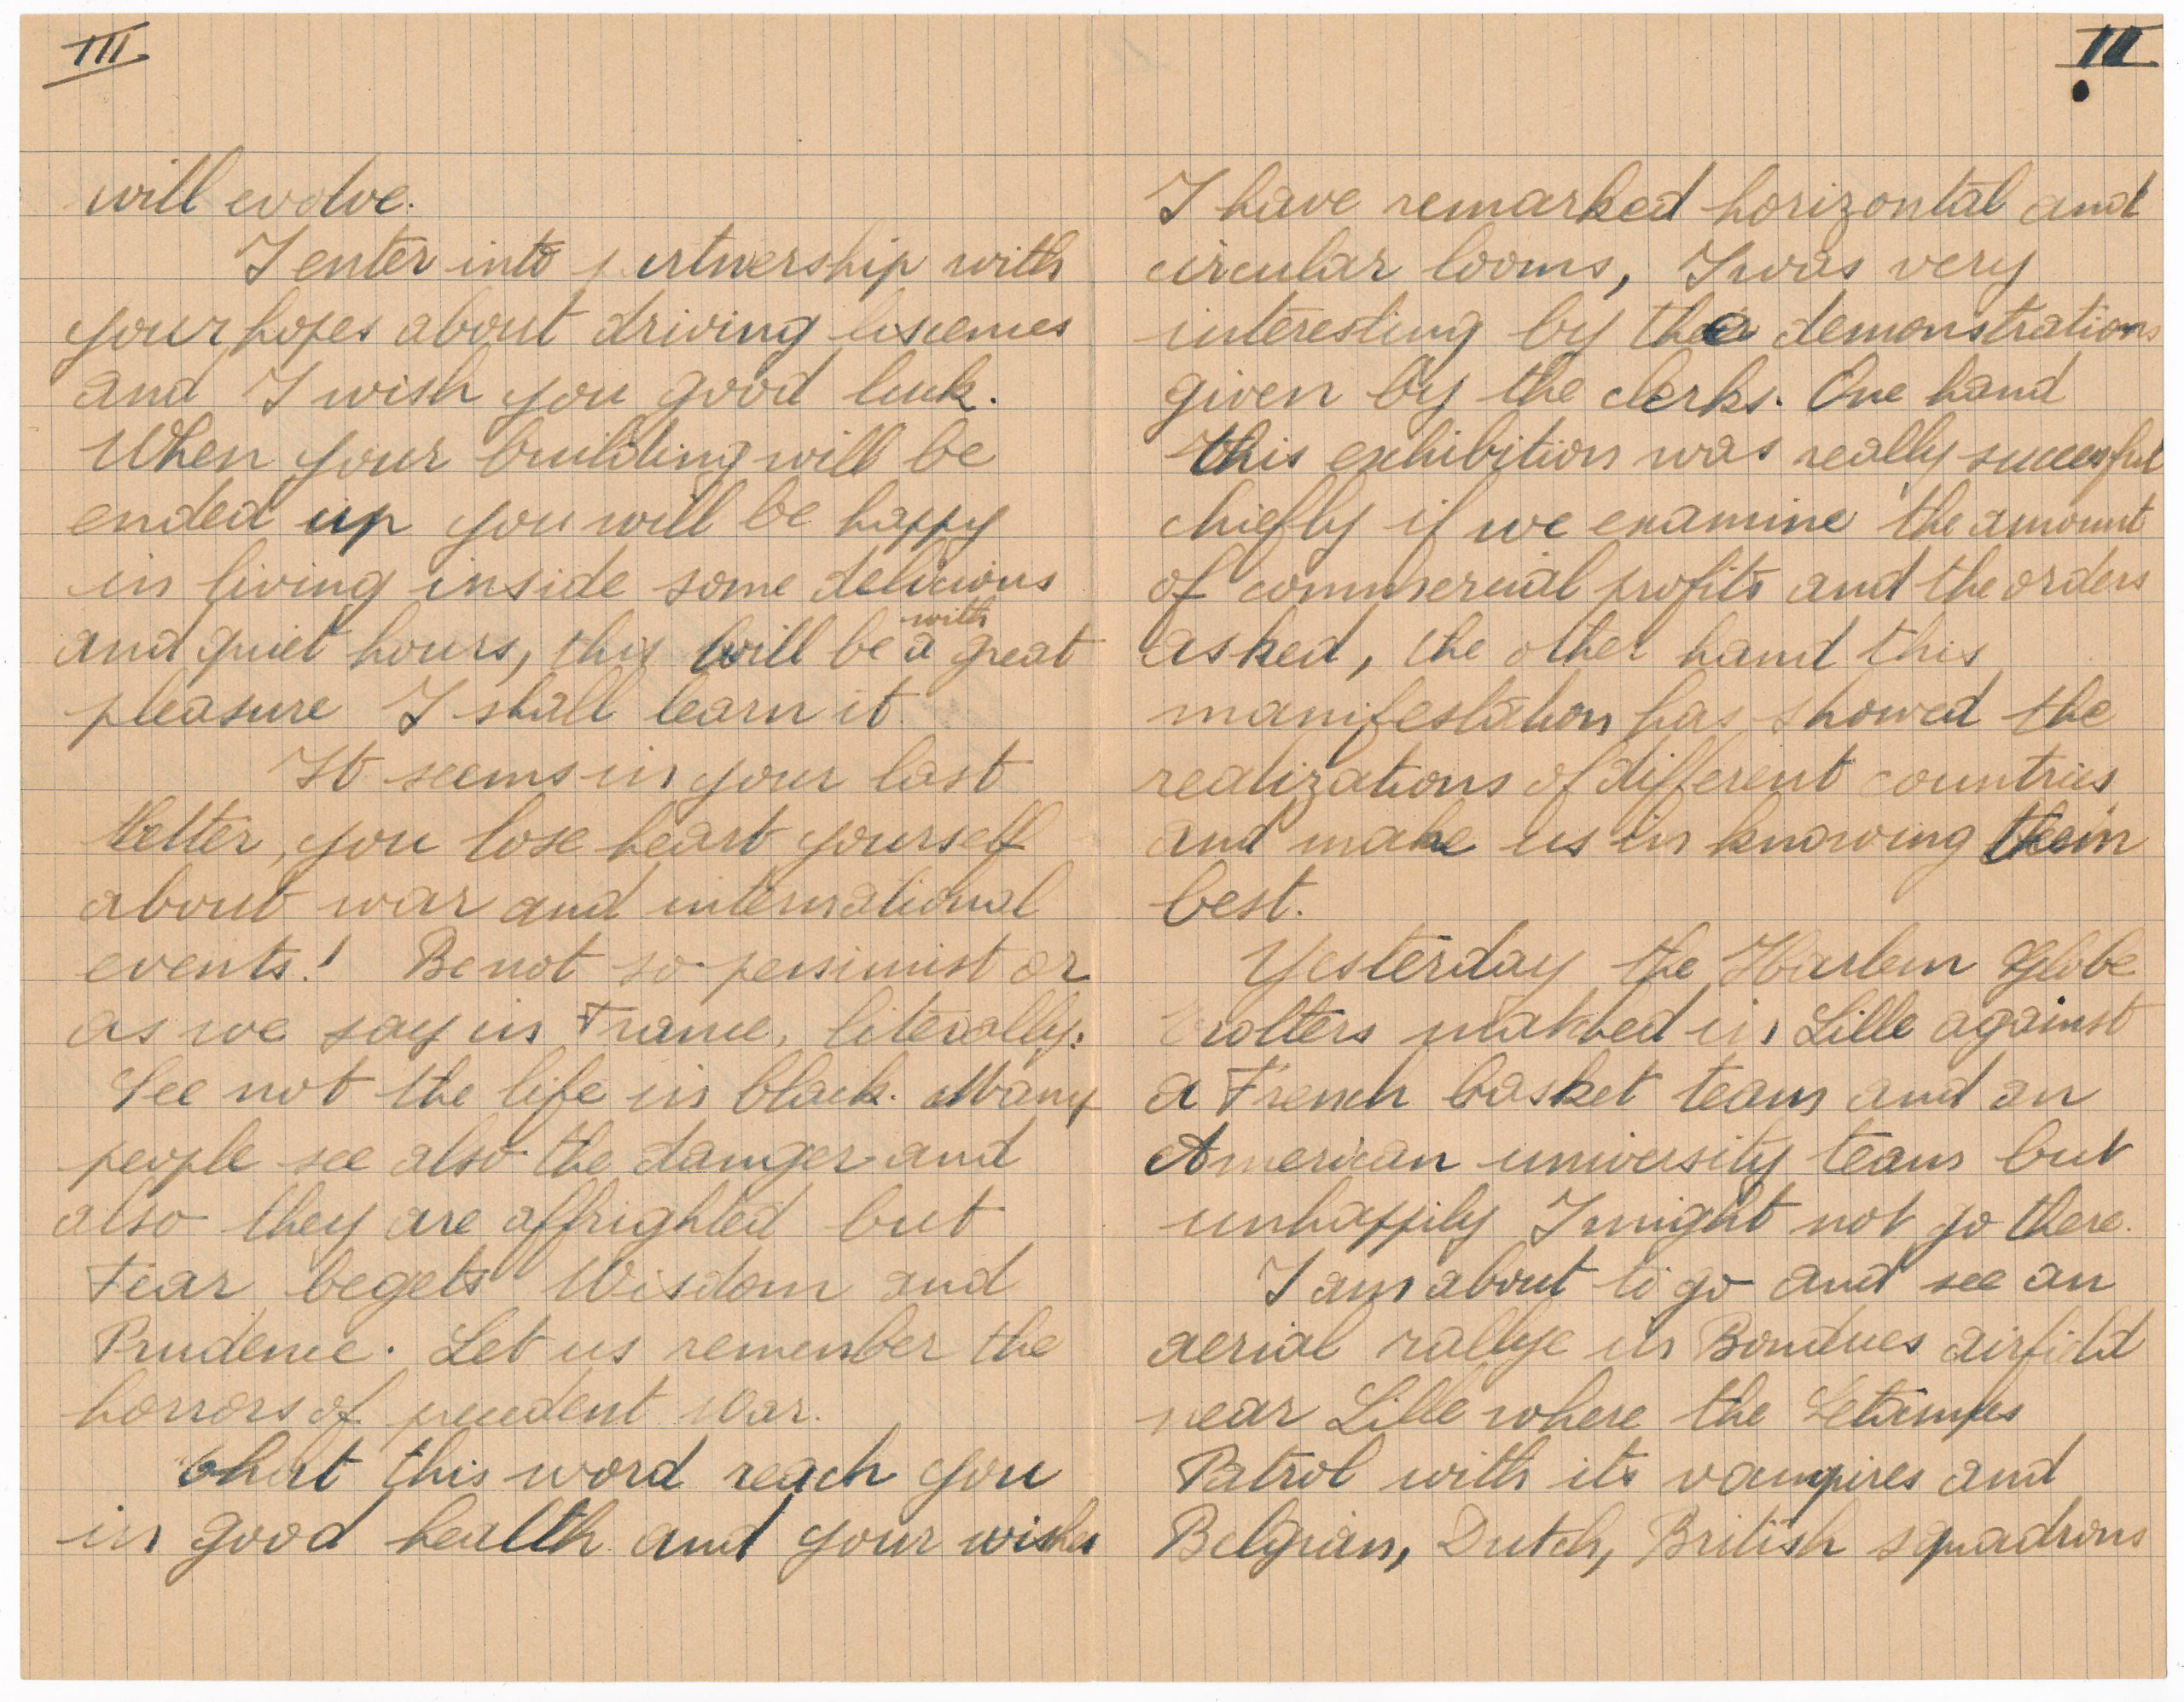 III
will evolve.
I enter into partnership with
your hopes about driving liscenies
and I wish you good luck.
When your building will be
ended up you will be happy
in living inside some delicious
with
and quiet hours, this will be a great
pleasure I shall learn it.
It seems in your last
letter, you lose heart yourself
about war and international
events! Be not so pessimist or
as we say in France, literally:
See not the life in black. Many
people see also the danger and
also they are affrighted but
Fear begets Wisdom and
Prudence. Let us remember the
horrors of precedent War.
that this word reach you
in good health and your wishes
II
I have remarked horizontal and
circular looms, I was very
interesting by the demonstrations
given by the clerks. One hand
this exhibition was really successful
chiefly if we examine the amount
of commercial profits and the orders
asked, the other hand this
manifestation has showed the
realizations of different countries
and make us in knowing them
best.
Yesterday the Harlem Globe
Trotters matched in Lille against
a French basket team and an
American university team but
unhappily I might not go there.
I am about to go and see an
aerial rallye in Bondues airfield
near Lille where the
Patrol with its vampires and
Belgian, Dutch, British squadrons